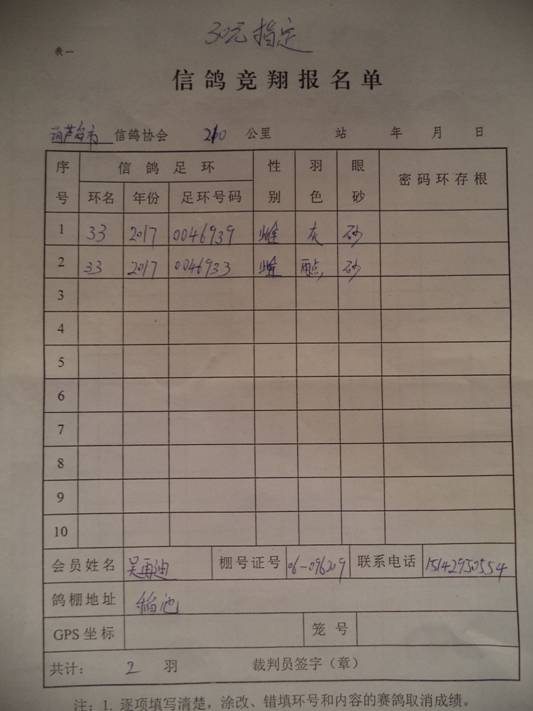 30元指定
表一
信鸽竞翔报名单
葫芦岛市 信鸽协会 210 公里 站 年 月 日
序号 信鸽足环 性别 羽色 眼砂 密码环存根
环名 年份 足环号码
1 33 2017 0046939 雌 灰 砂
2 33 2017 0046933 雌 雨点 砂
3
4
5
6
7
8
9
10
会员姓名 吴再迪 棚号证号 06-096209 联系电话 15142950554
鸽棚地址 稻池
GPS坐标 笼号
共计: 2 羽 裁判员签字（章）
注: 1. 逐项填写清楚，涂改、错填环号和内容的赛鸽取消成绩。